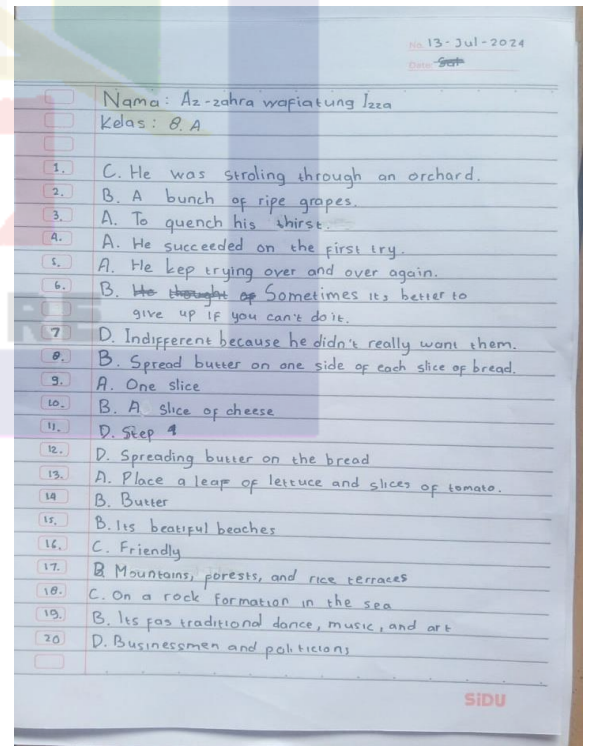 No. 13-Jul-2024
Date:
Nama : Az-zahra wafiatung Izza
Kelas : 8. A
1. C. He was stroling through an orchard.
2. B. A bunch of ripe grapes.
3. A. To quench his thirst.
4. A. He succeeded on the first try.
5. A. He kep trying over and over again.
6. B. He thought of Sometimes its better to
give up if you can't do it.
7 D. Indifferent because he didn't really want them.
8. B. Spread butter on one side of each slice of bread.
9. A. One slice
10. B. A slice of cheese
11. D. Step 4
12. D. Spreading butter on the bread
13. A. Place a leaf of lettuce and slices of tomato.
14 B. Butter
15. B. Its beatiful beaches
16. C. Friendly
17. B Mountains, forests, and rice terraces
18. C. On a rock formation in the sea
19. B. Its fas traditional dance, music, and art
20 D. Businessmen and politicians
SiDU